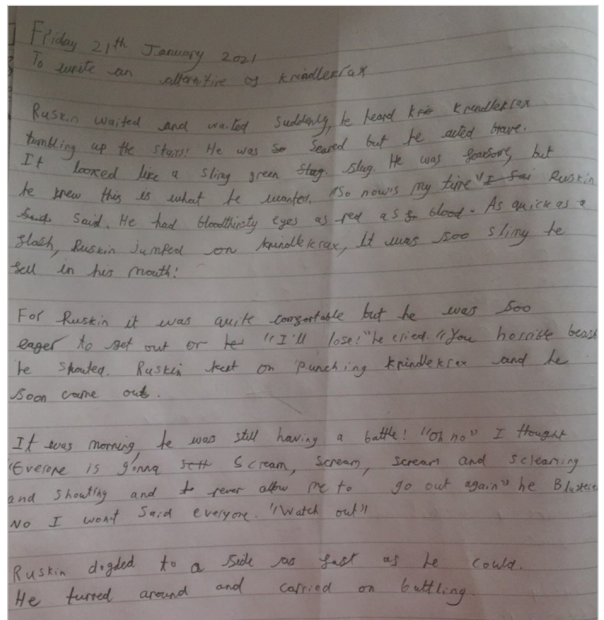 Friday 21th January 2021
To write an alternitive of krindlekrax
Ruskin waited and waited Suddenly, he heard krindlekrax
tumbling up the stairs! He was so scared but he acted brave.
It looked like a sling green slug He was but
he knew this is what he wanted. "So now's my time" Ruskin
said. He had bloodthirsty eyes as red as blood. As quick as a
flash, Ruskin jumped on krindlekrax, It was soo sling he
fell in his mouth!
For Ruskin it was quite comfortable but he was soo
eager to get out or he "I'll lose!" he cried. "You horrible beast
he shouted. Ruskin kept on punching krindlekrax and he
soon came out.
It was morning, he was still having a battle! "Oh no" I thought
"Everone is gonna scream, scream, scream and screaming
and shouting and never allow me to go out again" he
No I wont said everyone. "Watch out"
Ruskin dogded to a side as fast as he could.
He turred around and carried on battling.